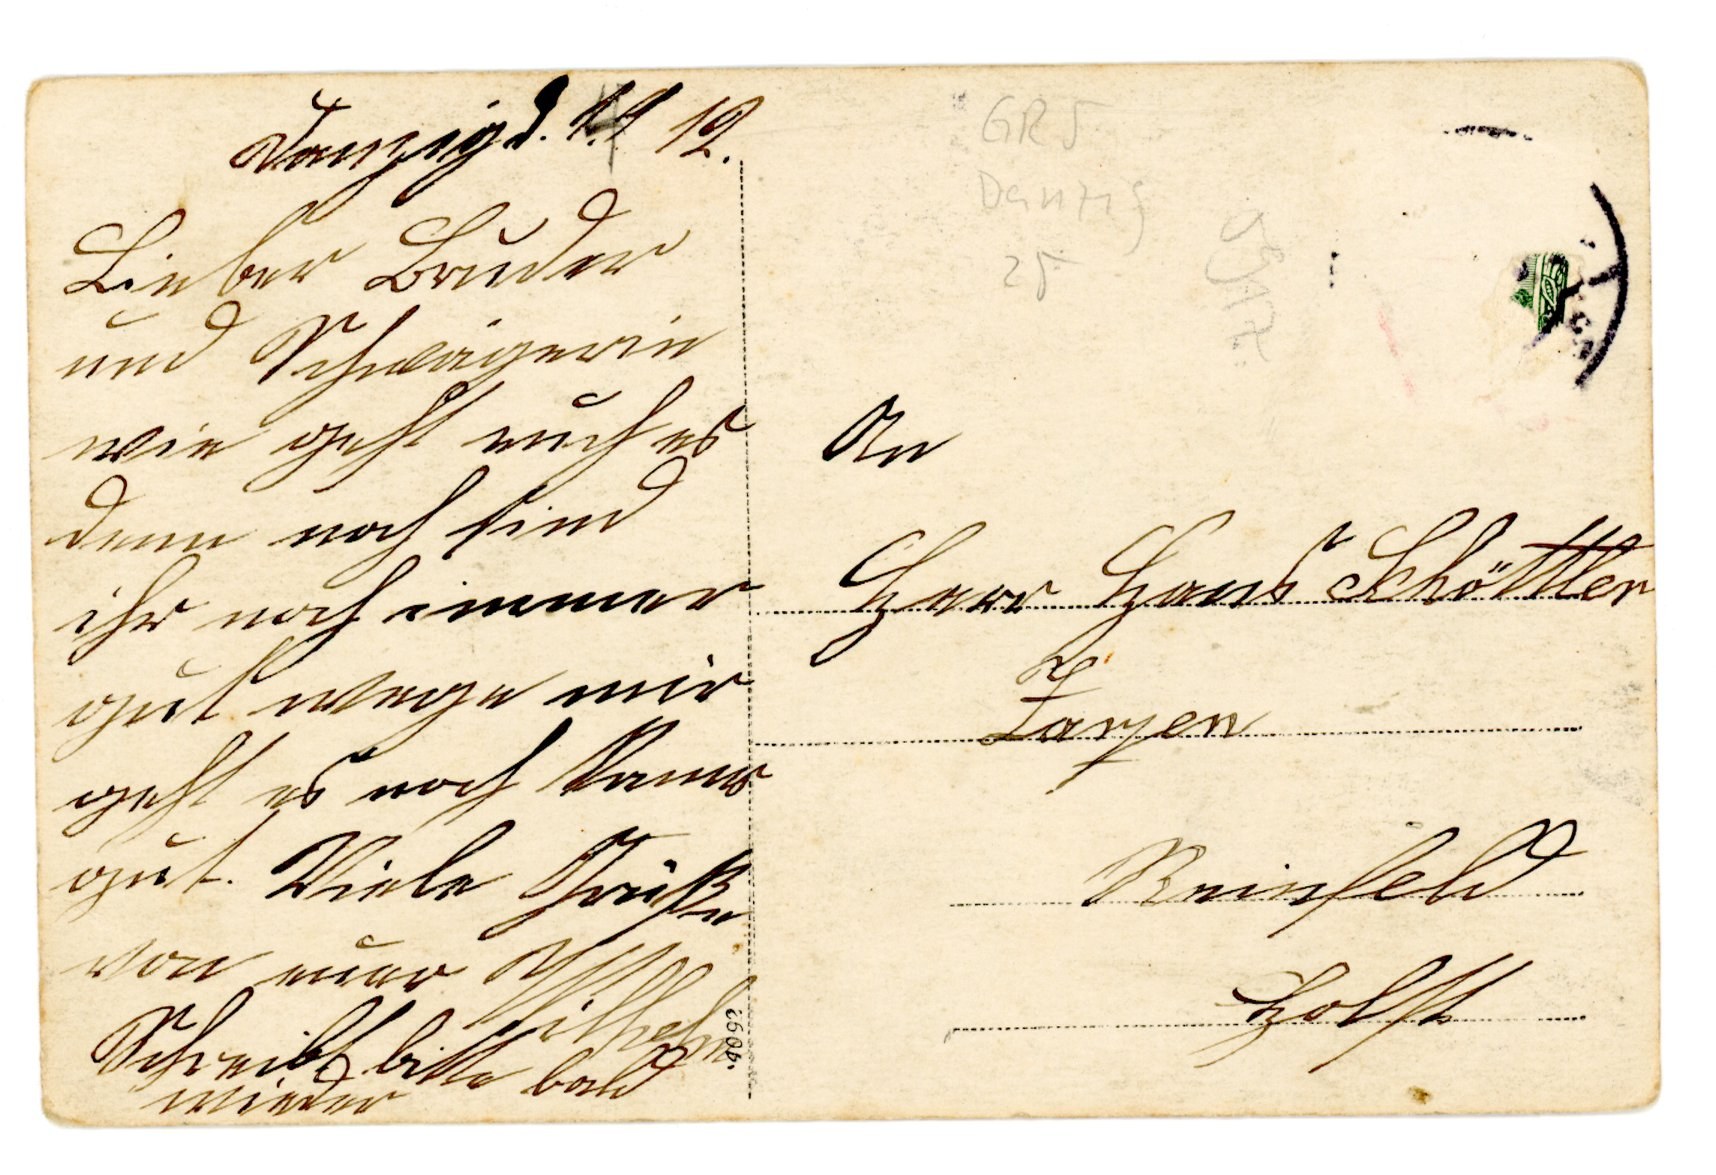 Danzig d. 4. 12.
Lieber Bruder
und Schwägerin
wie geht euch es
denn noch sind
ihr noch immer
gut wege mir
geht es noch
gut. Viele Grüße
von euer
Wilhelm
Schreibt bitte bald
wieder
GR 5
Danzig
25
An
Herr Hans Schöttler
Zarpen
Reinfeld
Holst